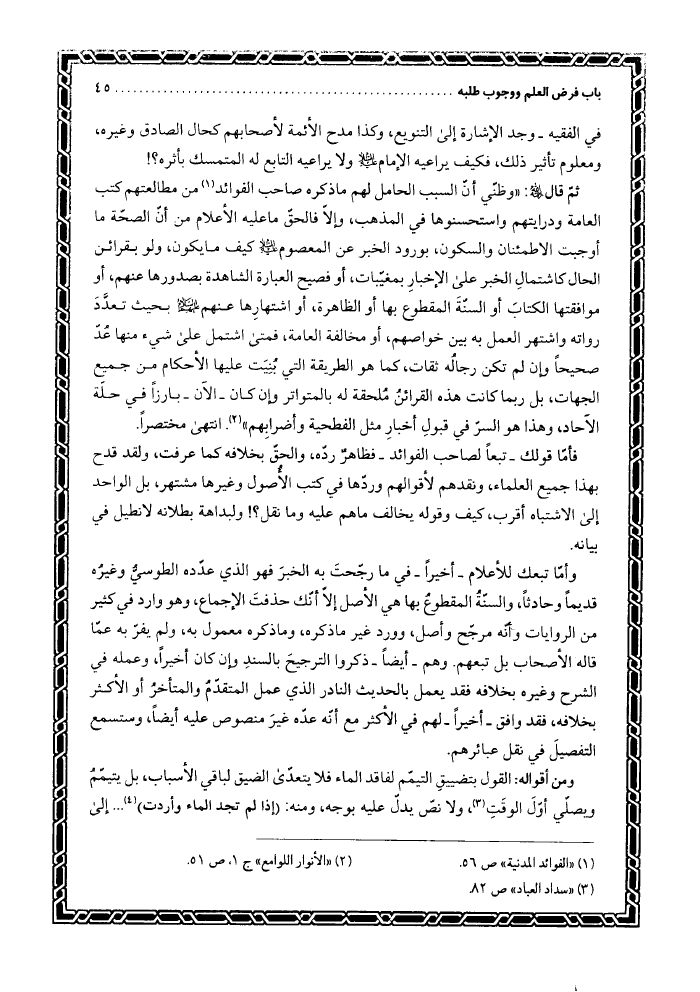 باب فرض العلم ووجوب طلبه ........................................................ ٤٥
في الفقيه ـ وجد الإشارة إلىٰ التنويع، وكذا مدح الأئمة لأصحابهم كحال الصادق وغيره،
ومعلوم تأثير ذلك، فكيف يراعيه الإمام ﷷ ولا يراعيه التابع له المتمسك بأثره؟!
ثمّ قال ﷼: «وظنّي أنّ السبب الحامل لهم ماذكره صاحب الفوائد(١) من مطالعتهم كتب
العامة ودرايتهم واستحسنوها في المذهب، وإلاّ فالحقّ ماعليه الأعلام من أنّ الصحّة ما
أوجبت الاطمئنان والسكون، بورود الخبر عن المعصوم كيف مايكون، ولو بقرائن
الحال كاشتمال الخبر علىٰ الإخبار بمغيّبات، أو فصيح العبارة الشاهدة بصدورها عنهم، أو
موافقتها الكتابَ أو السنّةَ المقطوع بها أو الظاهرة، أو اشتهارها عنهم بحيث تعدَّدَ
رواته واشتهر العمل به بين خواصهم، أو مخالفة العامة، فمتىٰ اشتمل علىٰ شيء منها عُدّ
صحيحاً وإن لم تكن رجالُه ثقات، كما هو الطريقة التي بُنِيَت عليها الأحكام من جميع
الجهات، بل ربما كانت هذه القرائنُ مُلحقة له بالمتواتر وإن كان ـ الآن ـ بارزاً في حلّة
الآحاد، وهذا هو السرّ في قبولِ أخبارِ مثل الفطحية وأضرابِهم»(٢). انتهىٰ مختصراً.
فأمّا قولك ـ تبعاً لصاحب الفوائد ـ فظاهرٌ ردّه، والحقّ بخلافه كما عرفت، ولقد قدح
بهذا جميع العلماء، ونقدهم لأقوالهم وردّها في كتب الأُصول وغيرها مشتهر، بل الواحد
إلىٰ الاشتباه أقرب، كيف وقوله يخالف ماهم عليه وما نقل؟! ولبداهة بطلانه لانطيل في
بيانه.
وأمّا تبعك للأعلام ـ أخيراً ـ في ما رجّحتَ به الخبرَ فهو الذي عدده الطوسيُّ وغيرُه
قديماً وحادثاً، والسنّةُ المقطوعُ بها هي الأصل إلاّ أنّك حذفتَ الإجماع، وهو وارد في كثير
من الروايات وأنّه مرجّح وأصل، وورد غير ماذكره، وماذكره معمول به، ولم يفرّ به عمّا
قاله الأصحاب بل تبعهم. وهم ـ أيضاً ـ ذكروا الترجيحَ بالسندِ وإن كان أخيراً، وعمله في
الشرح وغيره بخلافه فقد يعمل بالحديث النادر الذي عمل المتقدّمُ والمتأخرُ أو الأكثر
بخلافه، فقد وافق ـ أخيراً ـ لهم في الأكثر مع أنّه عدّه غيرَ منصوص عليه أيضاً، وستسمع
التفصيلَ في نقل عبائرهم.
ومن أقواله: القول بتضييقِ التيمّم لفاقد الماء فلا يتعدّىٰ الضيق لباقي الأسباب، بل يتيمّمُ
ويصلّي أوّلَ الوقَتِ(٣)، ولا نصّ يدلّ عليه بوجه، ومنه: (إذا لم تجد الماء وأردت)(٤)... إلىٰ
(١) «الفوائد المدنية» ص ٥٦.
(٢) «الأنوار اللوامع» ج ١، ص ٥١.
(٣) «سداد العباد» ص ٨٢.